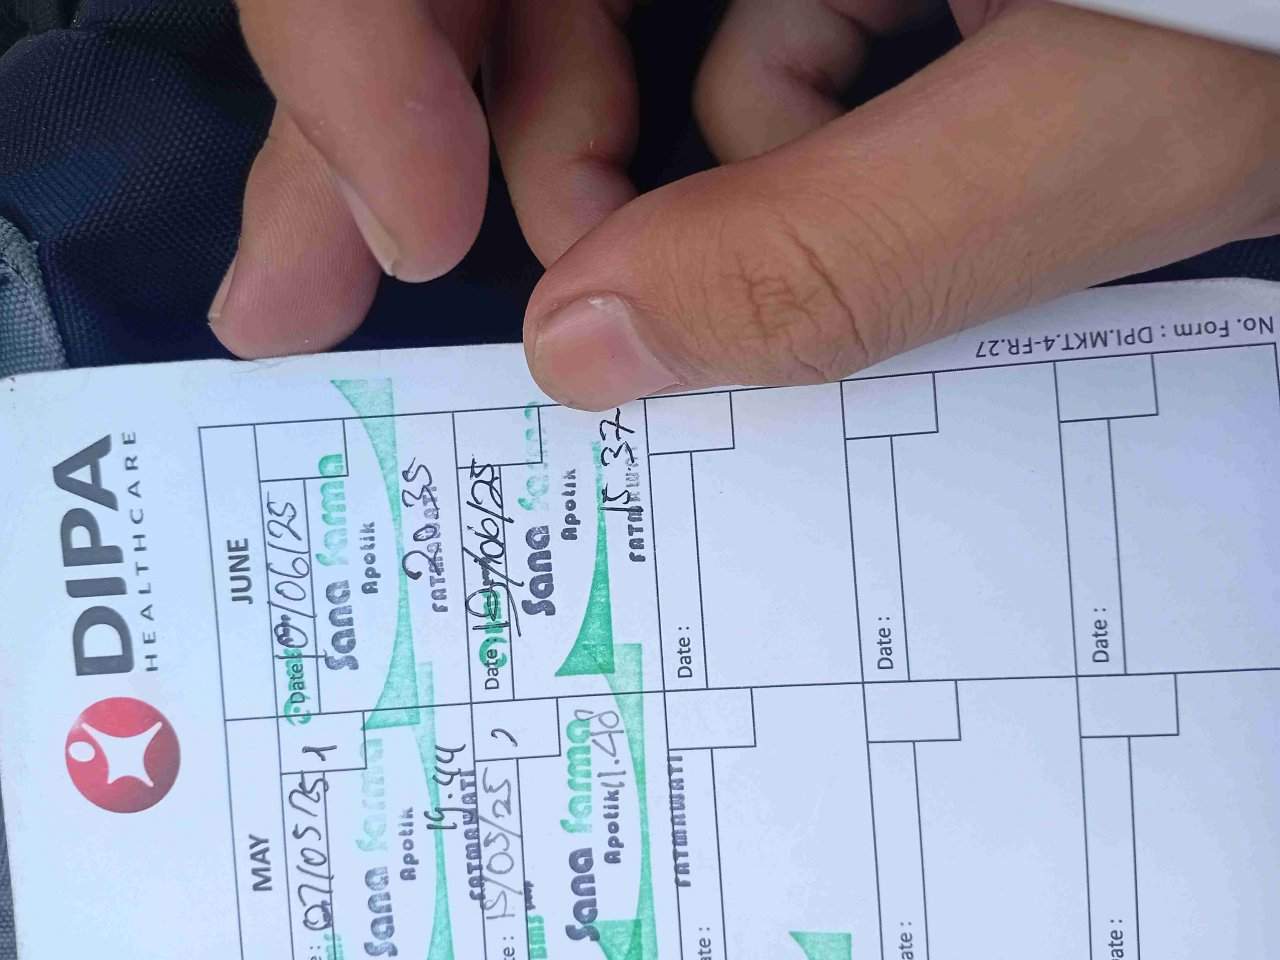 DIPA
HEALTHCARE
No. Form : DPI.MKT.4-FR.27
MAY
07/05/25
1
Sana Farma
Apotik
19.44
FATMAWATI
15/05/25
Sana Farma
Apotik
11.48
FATMAWATI
JUNE
Date:
10/06/25
Sana Farma
Apotik
20.35
FATMAWATI
Date:
/06/25
Sana Farma
Apotik
15.37
Date :
Date :
Date :